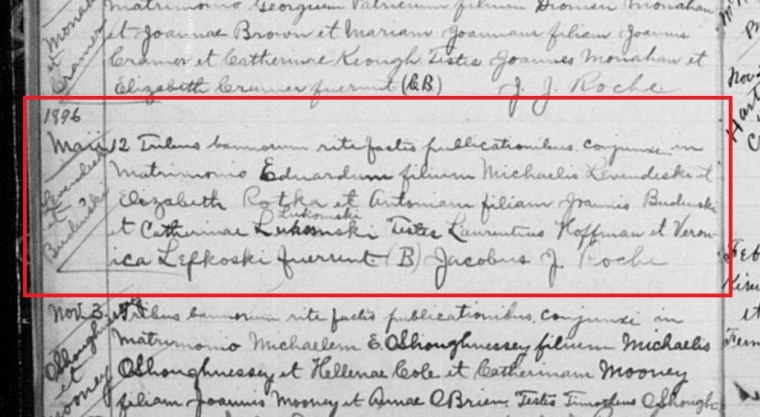 matrimonio Georgium Patricium filium Dionisii Monahan
et Joannae Brown et Mariam Joannam filiam Joannis
Cramer et Catherinae Keough. Testes Joannes Monahan et
Elizabeth Cramer fuerunt (CB) J. J. Roche
Monahan
et
Cramer
1896
Maii 12 Tribus bannorum rite factis publicationibus, conjunxi in
matrimonio Eduardum filium Michaelis Levindeski et
Elizabeth Rotka et Antoniam filiam Joannis Budinski
Lukomski
et Catherinae Lukomski Testes Laurentius Hoffman et Veron
ica Lefkoski fuerunt (B) Jacobus J. Roche
Levindeski
et
Budinski
Nov. 3. Tribus bannorum rite factis publicationibus, conjunxi in
matrimonio Michaelem E. OShoughnessey filium Michaelis
OShoughnessey et Hellenae Cole et Catherinam Mooney
filiam Joannis Mooney et Annae OBrien, Testes Timotheus OShough
OShoughnessey
et
Mooney
Nov
Feb
et